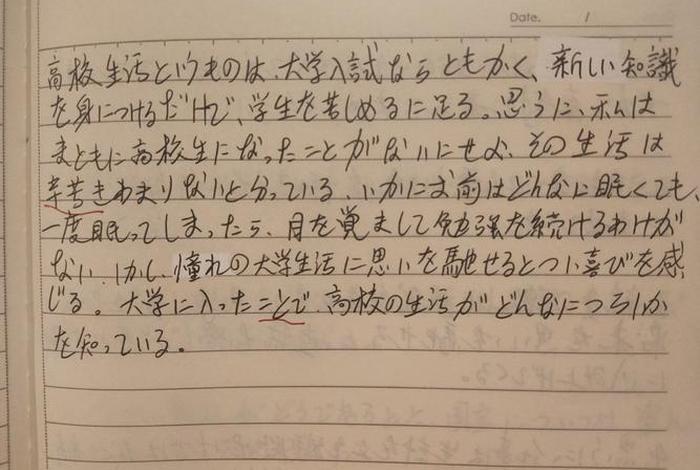 Date. /
高校生活というものは、大学入試ならともかく、新しい知識
を身につけるだけで、学生を苦しめるに足る。思うに、私は
まともに高校生になったことがないにせよ、その生活は
辛苦きわまりないと分っている。いかにお前はどんなに眠くても、
一度眠ってしまったら、目を覚まして勉強を続けるわけが
ない。しかし、憧れの大学生活に思いを馳せるとつい喜びを感
じる。大学に入ったことで、高校の生活がどんなにつらいか
を知っている。